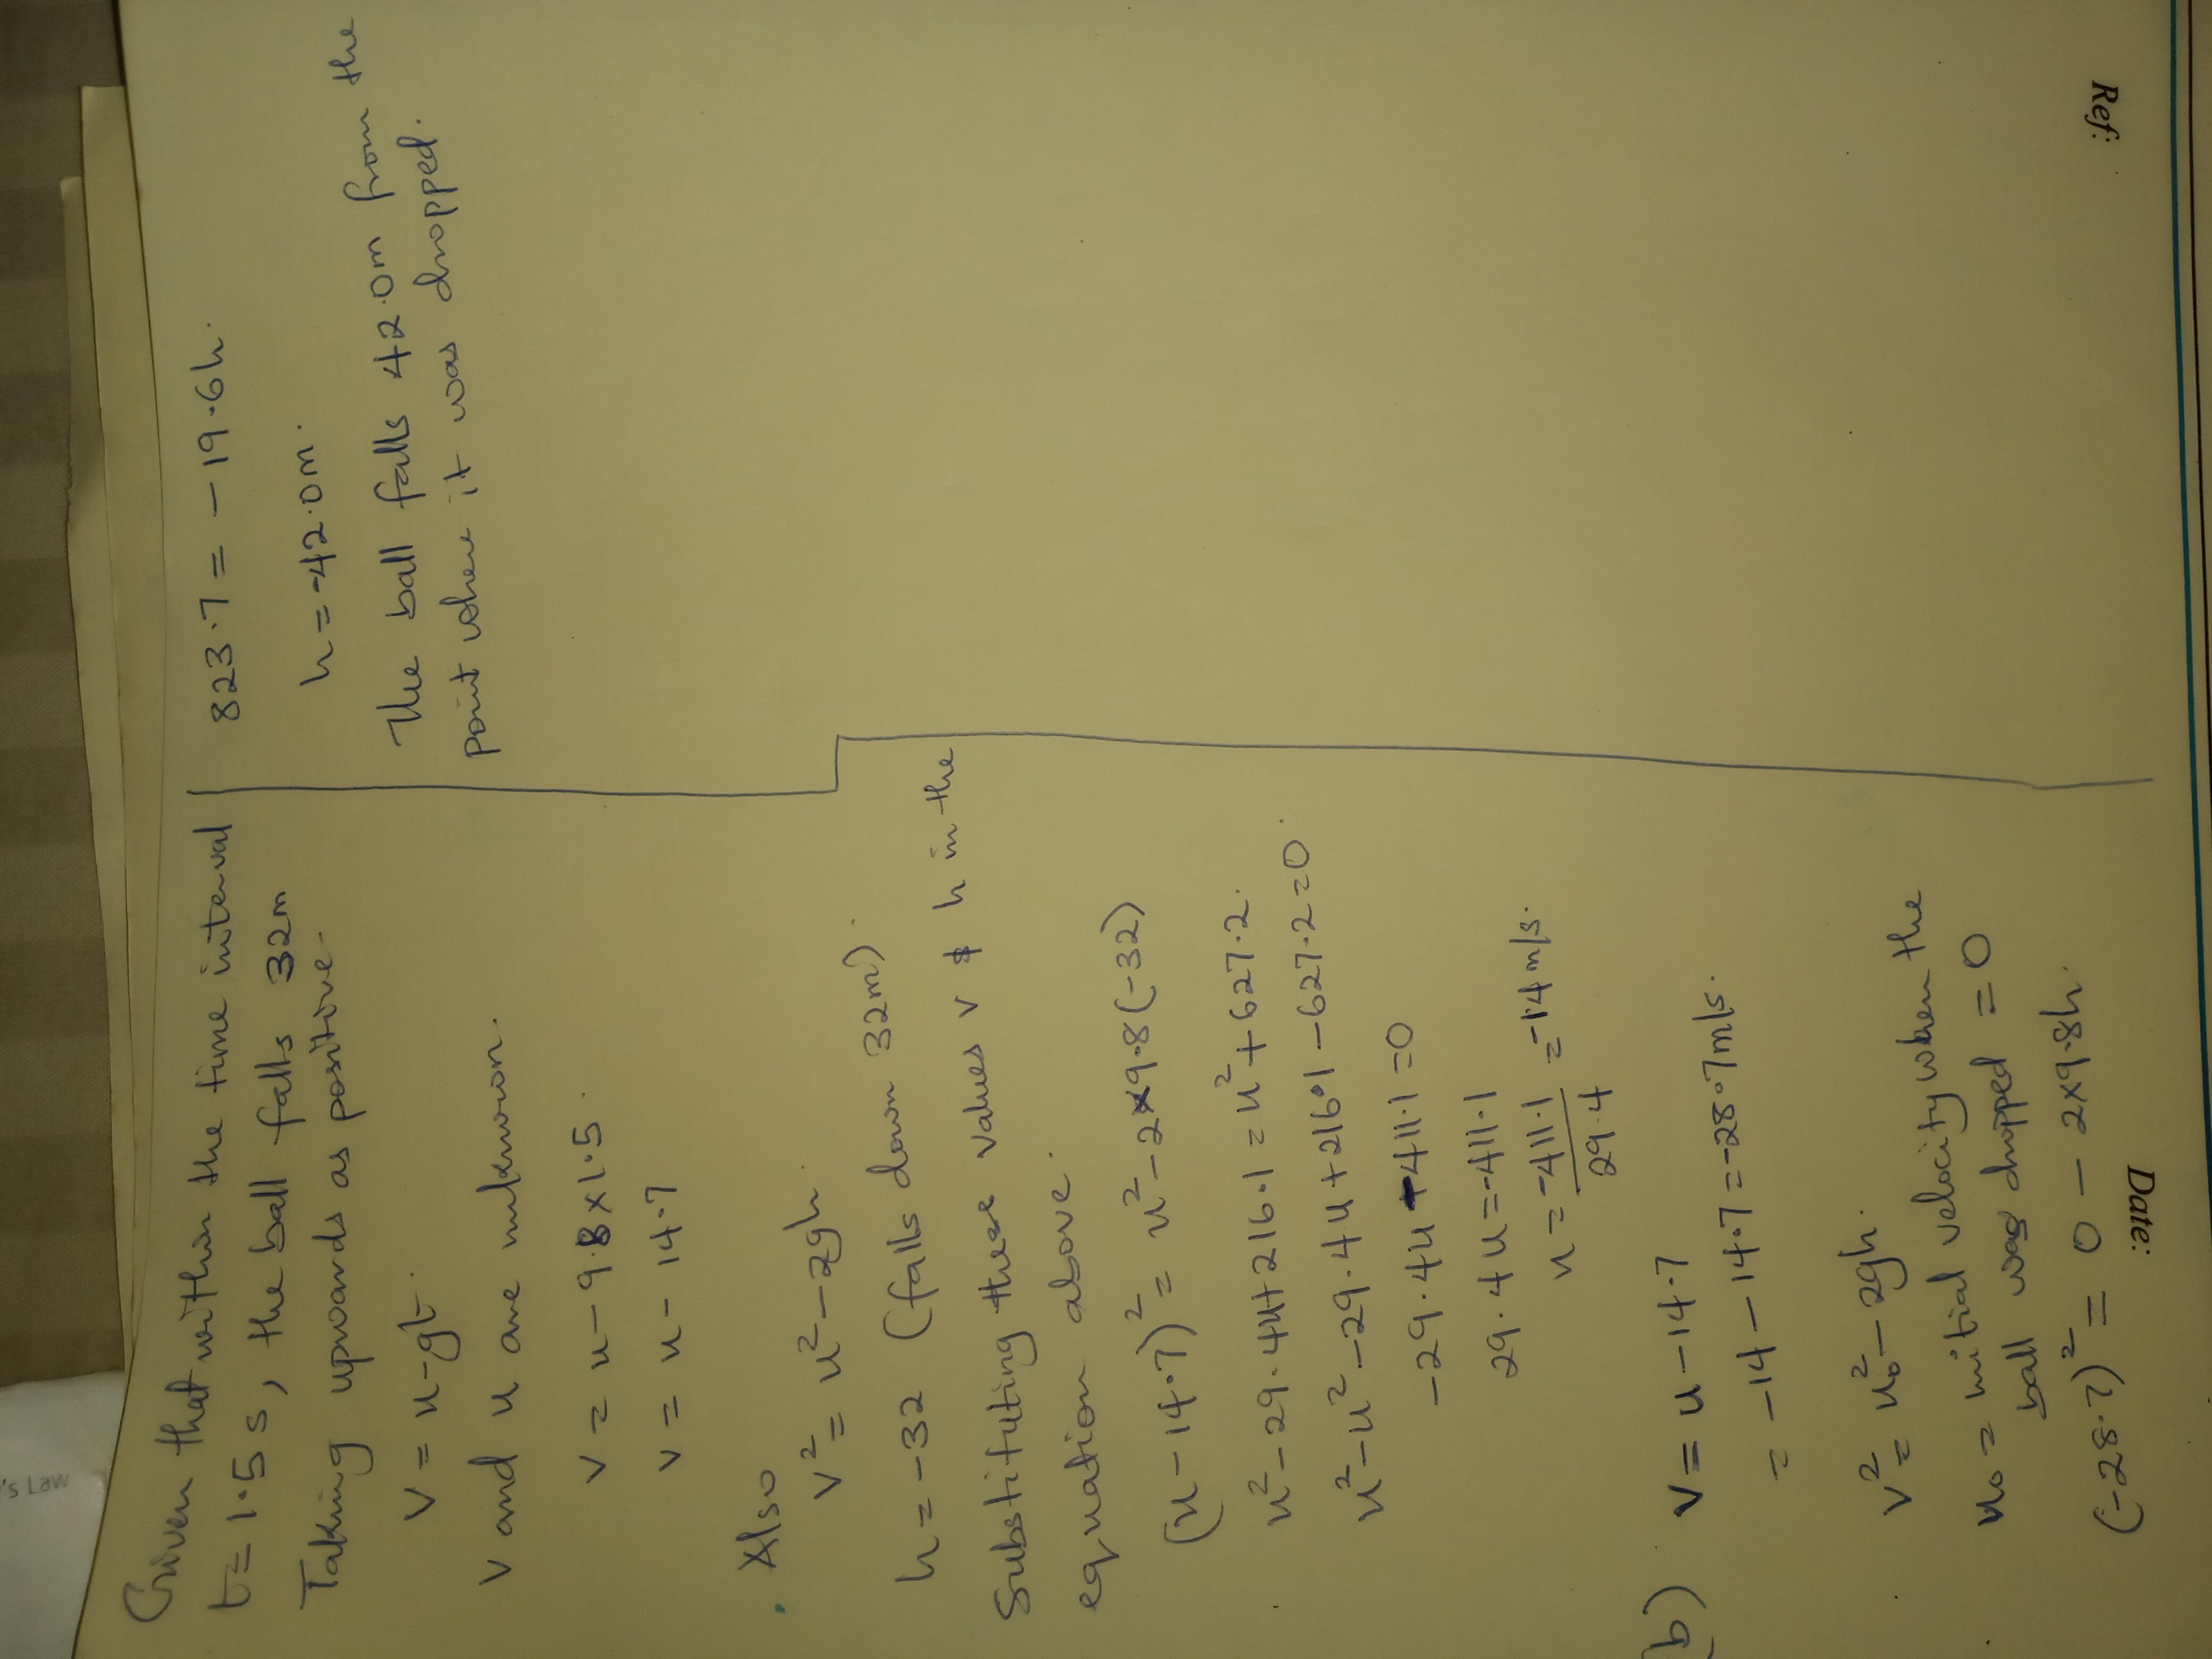 Given that within the time interval
t = 1.5 s, the ball falls 32m
Taking upwards as positive.
v = u - gt.
v and u are unknown.
v = u - 9.8 x 1.5.
v = u - 14.7
Also
v² = u² - 2gh.
h = -32 (falls down 32m).
Substituting these values v & h in the
equation above.
(u - 14.7)² = u² - 2x9.8(-32)
u² - 29.4u + 216.1 = u² + 627.2.
u² - u² - 29.4u + 216.1 - 627.2 = 0.
-29.4u - 411.1 = 0
29.4u = -411.1
u = -411.1 / 29.4 = -14 m/s.
(b) v = u - 14.7
= -14 - 14.7 = -28.7 m/s.
v² = u₀² - 2gh.
u₀ = initial velocity when the
ball was dropped = 0
(-28.7)² = 0 - 2x9.8h.
823.7 = -19.6h.
h = -42.0m.
The ball falls 42.0m from the
point where it was dropped.
Date:
Ref:
's Law